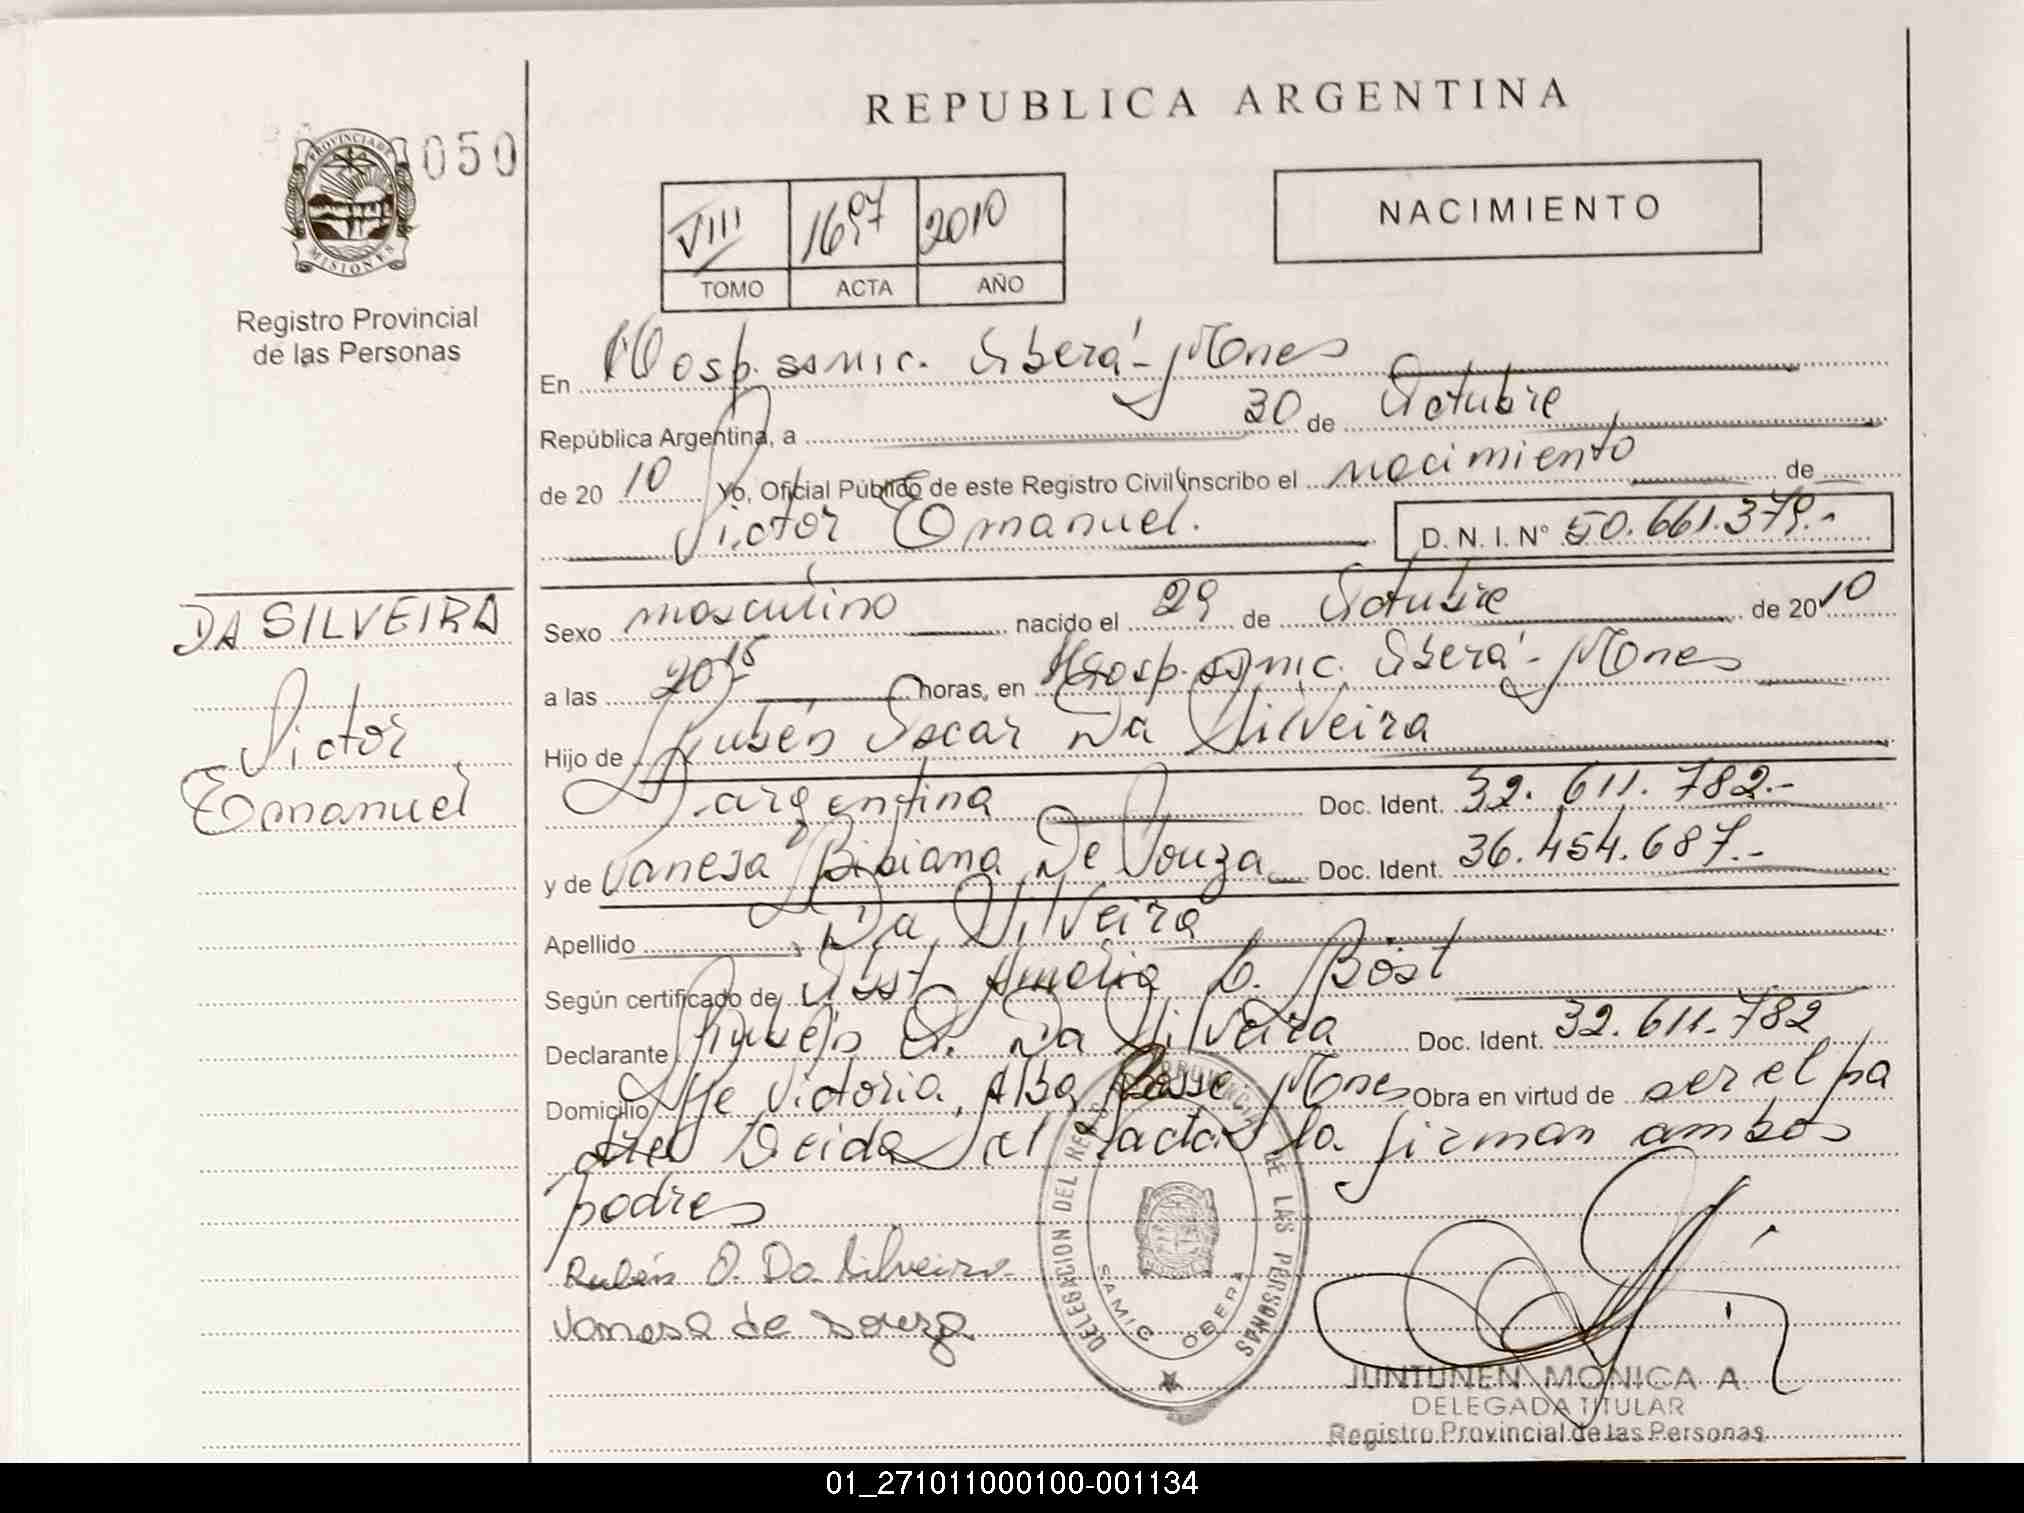 REPUBLICA ARGENTINA
050
PROVINCIA DE MISIONES
Registro Provincial
de las Personas
NACIMIENTO
VIII 1697 2010
TOMO ACTA AÑO
En Hosp. SAMIC. Oberá - Mnes
República Argentina, a 30 de Octubre
de 20 10 Yo, Oficial Público de este Registro Civil inscribo el nacimiento de
Victor Emanuel. D. N. I. N° 50.661.379.-
DA SILVEIRA
Victor
Emanuel
Sexo masculino nacido el 29 de Octubre de 20 10
a las 20 15 horas, en Hosp. SAMIC. Oberá - Mnes
Hijo de Rubén Oscar Da Silveira
argentina Doc. Ident. 32.611.782.-
y de Vanesa Bibiana De Souza Doc. Ident. 36.454.687.-
Apellido Da Silveira
Según certificado de Obst. Amalia C. Böst
Declarante Rubén O. Da Silveira Doc. Ident. 32.611.782
Domicilio Victoria, Alba Posse Mnes Obra en virtud de ser el pa
dre Leida el acta la firman ambos
padres
Rubén O. Da Silveira
Vanesa de Souza
DELEGACION DEL REG. PROVINCIAL DE LAS PERSONAS
SAMIC OBERA
JUNTUNEN MONICA A.
DELEGADA TITULAR
Registro Provincial de las Personas
01_271011000100-001134